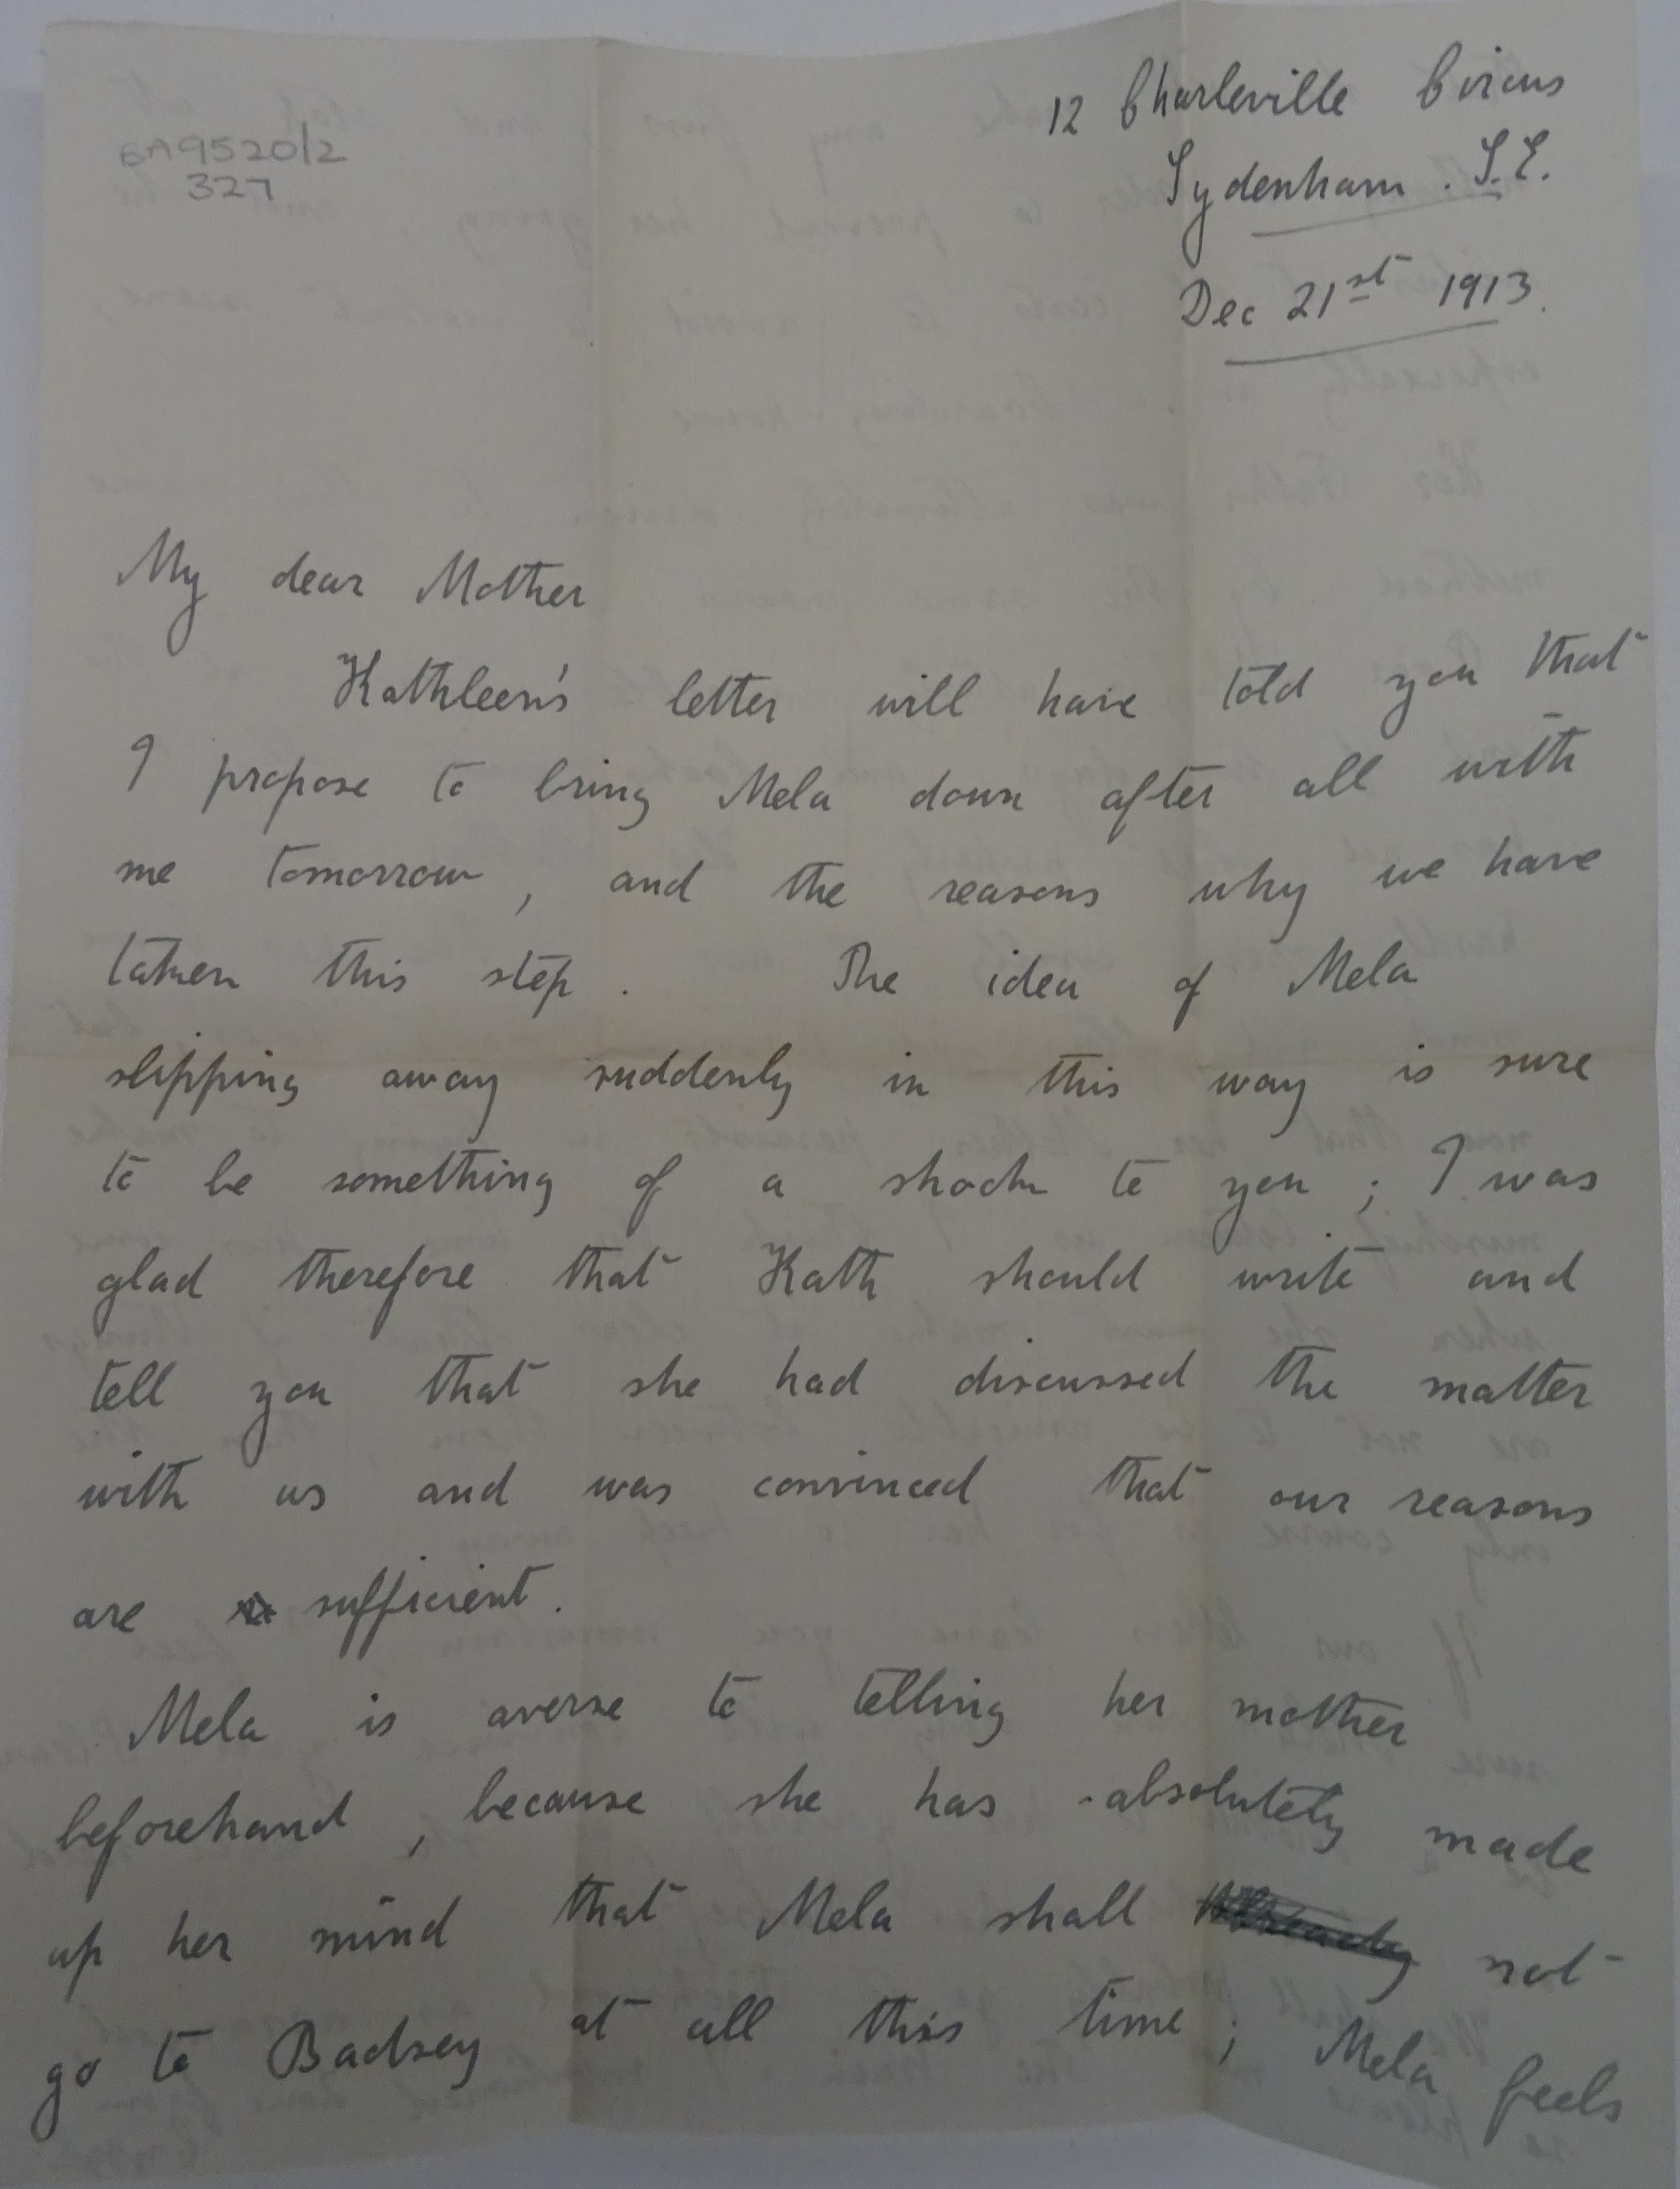 12 Charleville Circus
BA9520/2
327
Sydenham . S.E.
Dec 21st 1913.
My dear Mother
Kathleen's letter will have told you that
I propose to bring Mela down after all with
me tomorrow, and the reasons why we have
taken this step. The idea of Mela
slipping away suddenly in this way is sure
to be something of a shock to you; I was
glad therefore that Kath should write and
tell you that she had discussed the matter
with us and was convinced that our reasons
are sufficient.
Mela is averse to telling her mother
beforehand, because she has absolutely made
up her mind that Mela shall not
go to Badsey at all this time; Mela feels